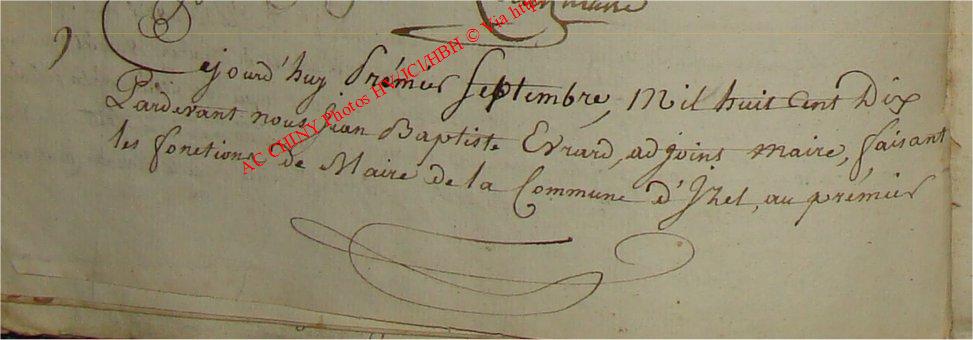 Cejourd'huy Prémier Septembre, Mil huit Cent Dix
Pardevant nous Jean Baptiste Evrard, adjoins maire, faisant
les fonctions de Maire de la Commune d'Izel, au prémier
AC CHINY Photos HV-JCl/HBH © Via http